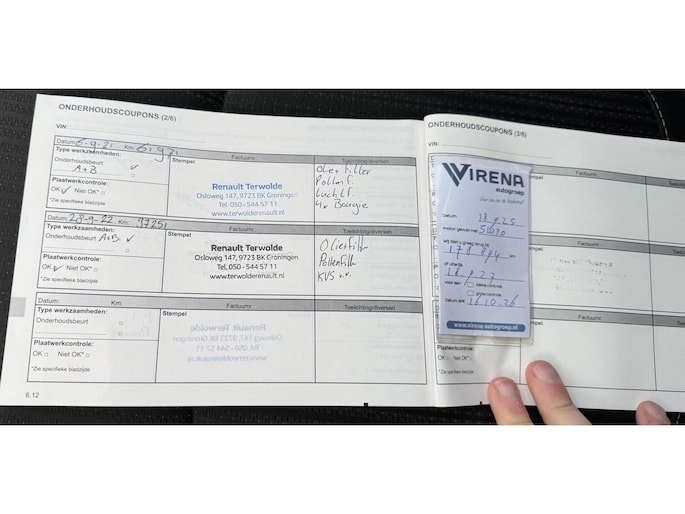 ONDERHOUDSCOUPONS (2/6)
VIN:
Datum: 5-9-21 Km:
Type werkzaamheden:
Onderhoudsbeurt ✓
A+B
Plaatwerkcontrole:
OK ✓ Niet OK*
*Zie specifieke bladzijde
Stempel
Factuurnr.
Renault Terwolde
Osloweg 147, 9723 BK Groningen
Tel. 050 - 544 57 11
www.terwolderenault.nl
Toelichting/diversen
Oliefilter
Pollenf.
Luchtf.
4x Bougie
Datum: 28-9-22 Km:
Type werkzaamheden:
Onderhoudsbeurt A+B ✓
Plaatwerkcontrole:
OK ✓ Niet OK*
*Zie specifieke bladzijde
Stempel
Factuurnr.
Renault Terwolde
Osloweg 147, 9723 BK Groningen
Tel. 050 - 544 57 11
www.terwolderenault.nl
Toelichting/diversen
Oliefilt
Pollenfilt
KVS v.v.
Datum: Km:
Type werkzaamheden:
Onderhoudsbeurt
Plaatwerkcontrole:
OK Niet OK*
*Zie specifieke bladzijde
Stempel
Factuurnr.
Toelichting/diversen
6.12
ONDERHOUDSCOUPONS (3/6)
VIN:
Factuurnr.
Toelichting/diversen
Stempel
Factuurnr.
Toelichting/diversen
Factuurnr.
Toelichting/diversen
Plaatwerkcontrole:
OK Niet OK*
*Zie specifieke bladzijde
VIRENA
autogroep
Datum 18.9.25
wij zien u graag terug bij
of uiterlijk
18.9.27
kleine controle
grote controle
Datum APK 16.10.26
www.virena-autogroep.nl